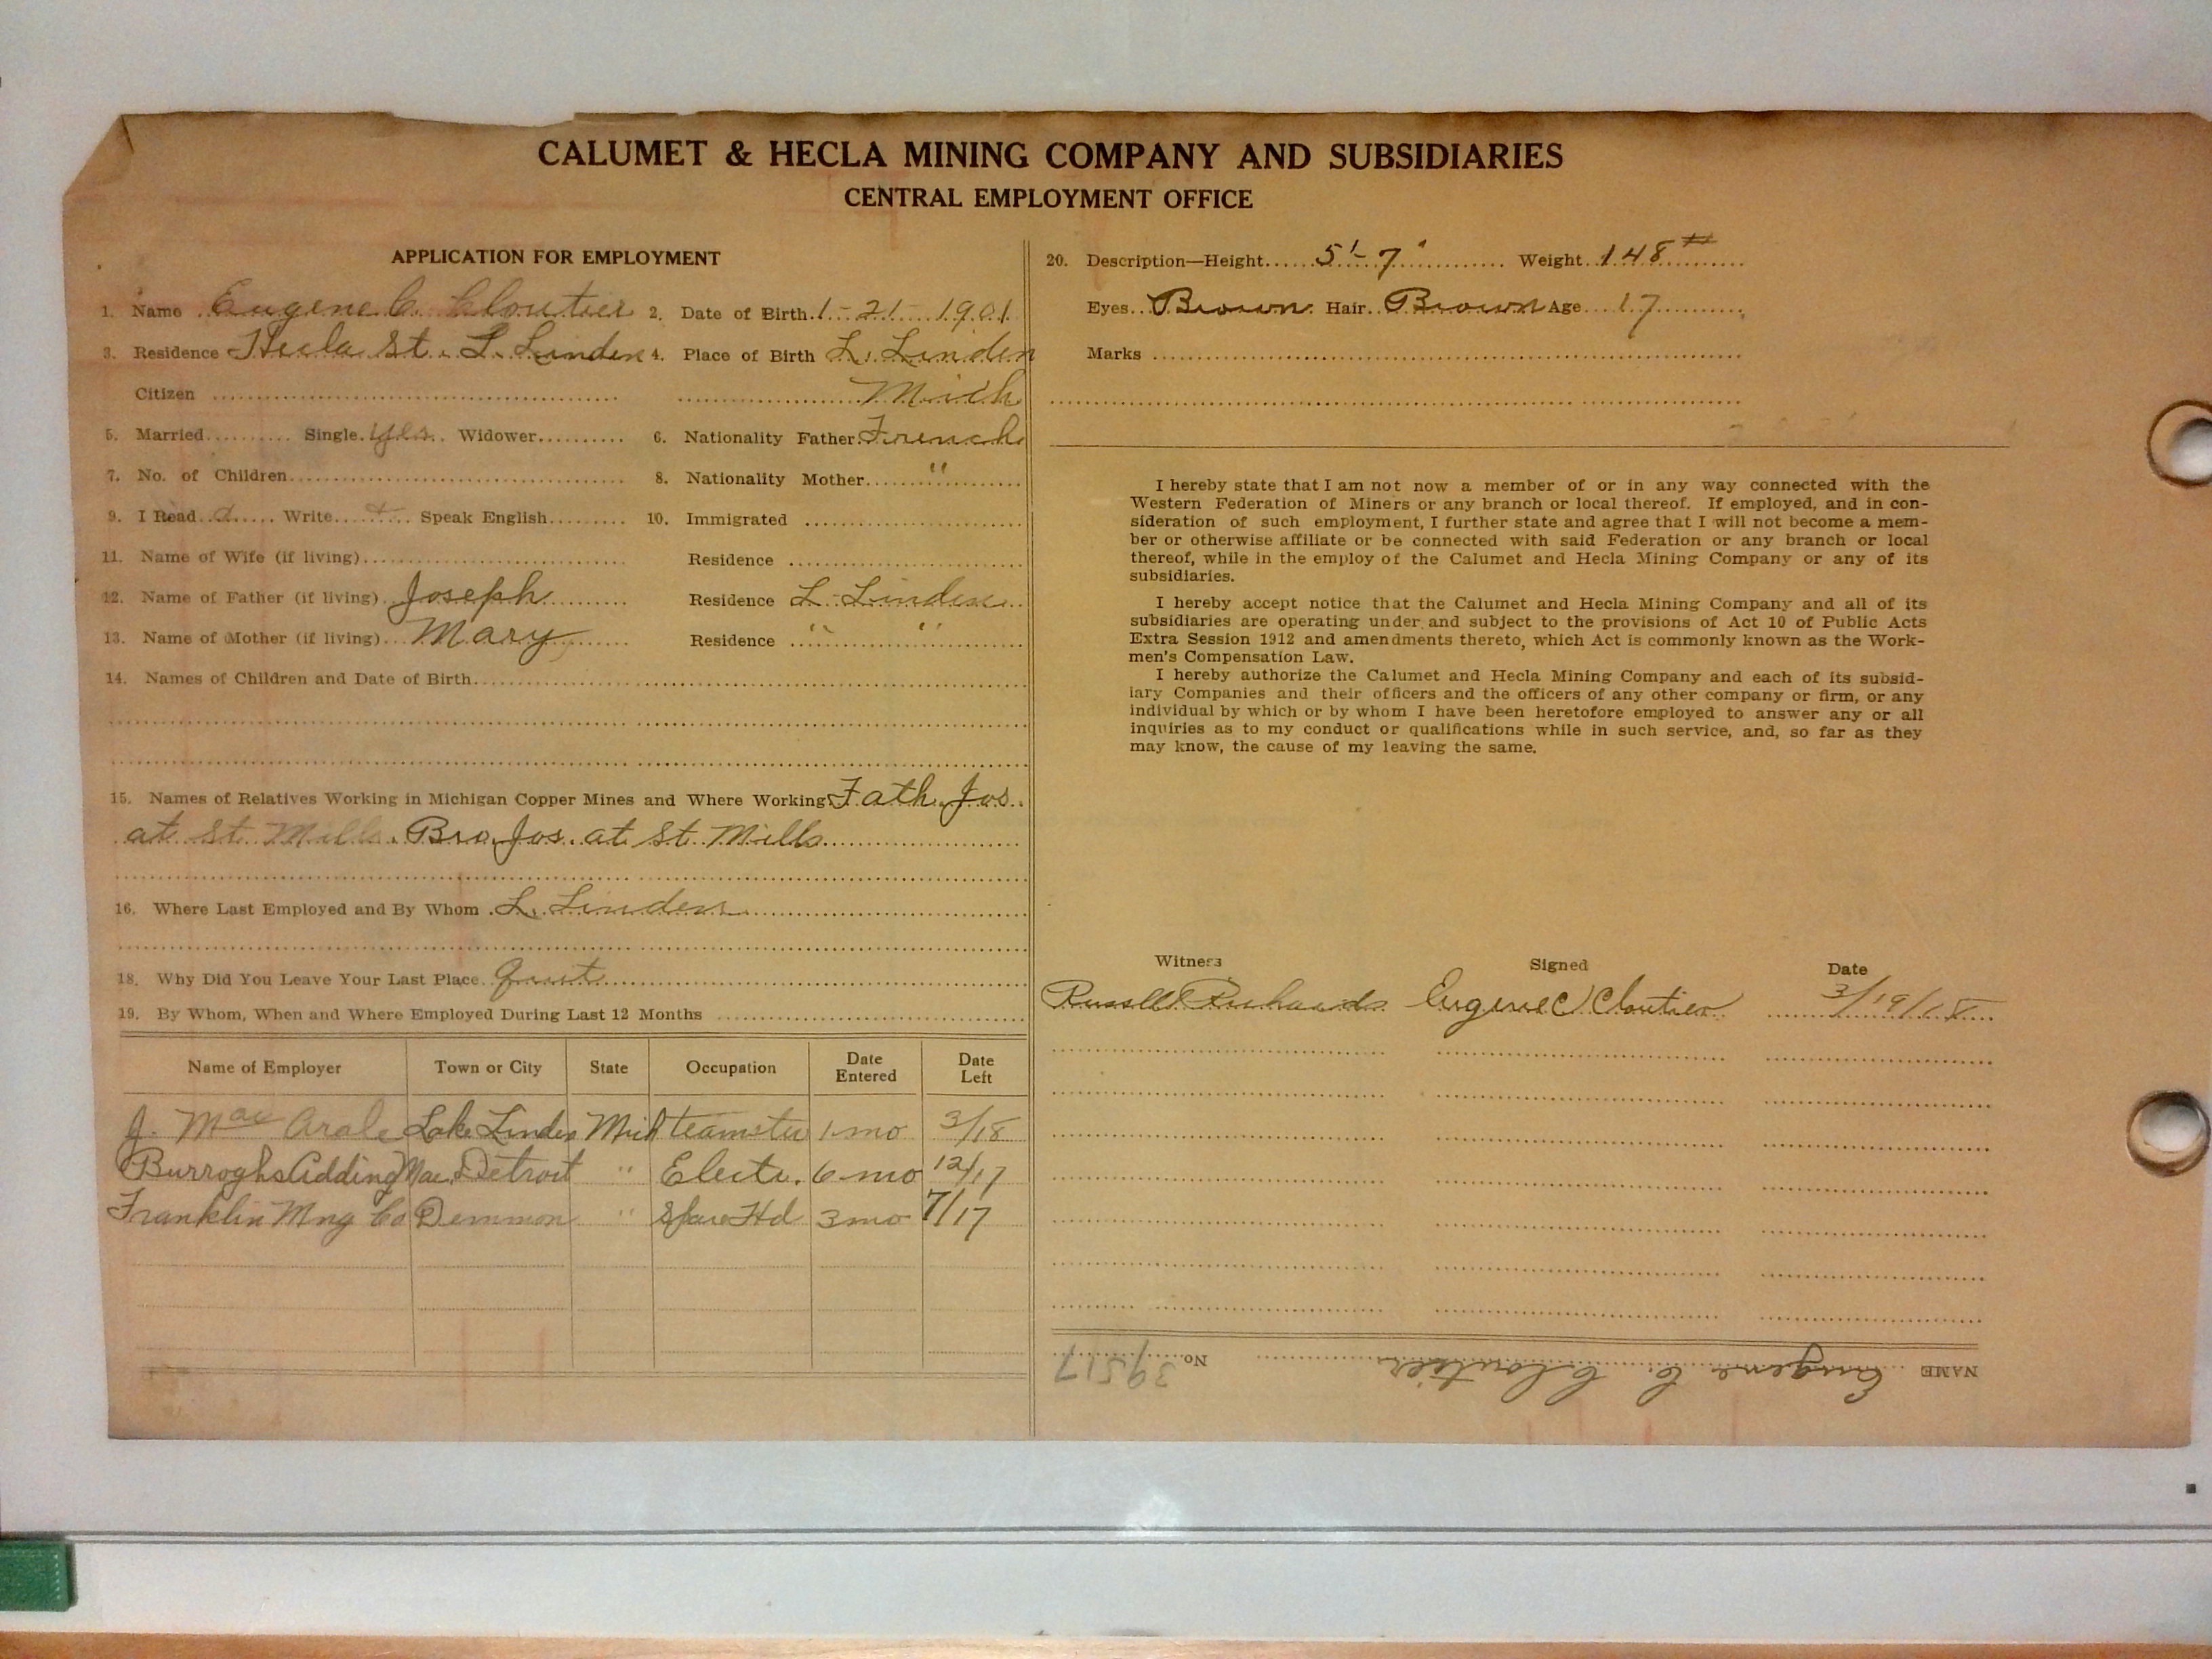 CALUMET & HECLA MINING COMPANY AND SUBSIDIARIES
CENTRAL EMPLOYMENT OFFICE
APPLICATION FOR EMPLOYMENT
1. Name Eugene C. Cloutier 2. Date of Birth 1-21-1901
3. Residence Hecla St. L. Linden 4. Place of Birth L. Linden
Citizen Mich
5. Married Single Yes Widower 6. Nationality Father French
7. No. of Children 8. Nationality Mother "
9. I Read Write Speak English 10. Immigrated
11. Name of Wife (if living) Residence
12. Name of Father (if living) Joseph Residence L. Linden
13. Name of Mother (if living) Mary Residence " "
14. Names of Children and Date of Birth
15. Names of Relatives Working in Michigan Copper Mines and Where Working Fath. Jos.
at St. Mills. Bro. Jos. at St. Mills
16. Where Last Employed and By Whom L. Linden
18. Why Did You Leave Your Last Place Quit
19. By Whom, When and Where Employed During Last 12 Months
Name of Employer Town or City State Occupation Date Entered Date Left
J. Mac Lake Linden Mich teamster 1 mo 3/18
Burroghs Adding Mac. Detroit " Electr. 6 mo 12/17
Franklin Mng Co Demmon " Hd 3 mo 7/17
20. Description—Height 5'-7" Weight 148#
Eyes Brown Hair Brown Age 17
Marks
I hereby state that I am not now a member of or in any way connected with the
Western Federation of Miners or any branch or local thereof. If employed, and in con-
sideration of such employment, I further state and agree that I will not become a mem-
ber or otherwise affiliate or be connected with said Federation or any branch or local
thereof, while in the employ of the Calumet and Hecla Mining Company or any of its
subsidiaries.
I hereby accept notice that the Calumet and Hecla Mining Company and all of its
subsidiaries are operating under and subject to the provisions of Act 10 of Public Acts
Extra Session 1912 and amendments thereto, which Act is commonly known as the Work-
men's Compensation Law.
I hereby authorize the Calumet and Hecla Mining Company and each of its subsid-
iary Companies and their officers and the officers of any other company or firm, or any
individual by which or by whom I have been heretofore employed to answer any or all
inquiries as to my conduct or qualifications while in such service, and, so far as they
may know, the cause of my leaving the same.
Witness Signed Date
Russell Richards Eugene C Cloutier 3/19/18
NAME Eugene C. Cloutier No. 39517